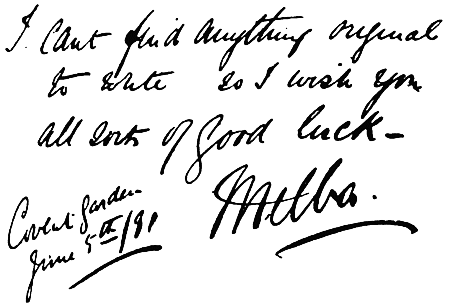 I cant find anything original
to write so I wish you
all sorts of good luck -
Melba.
Covent Garden
June 5th/91